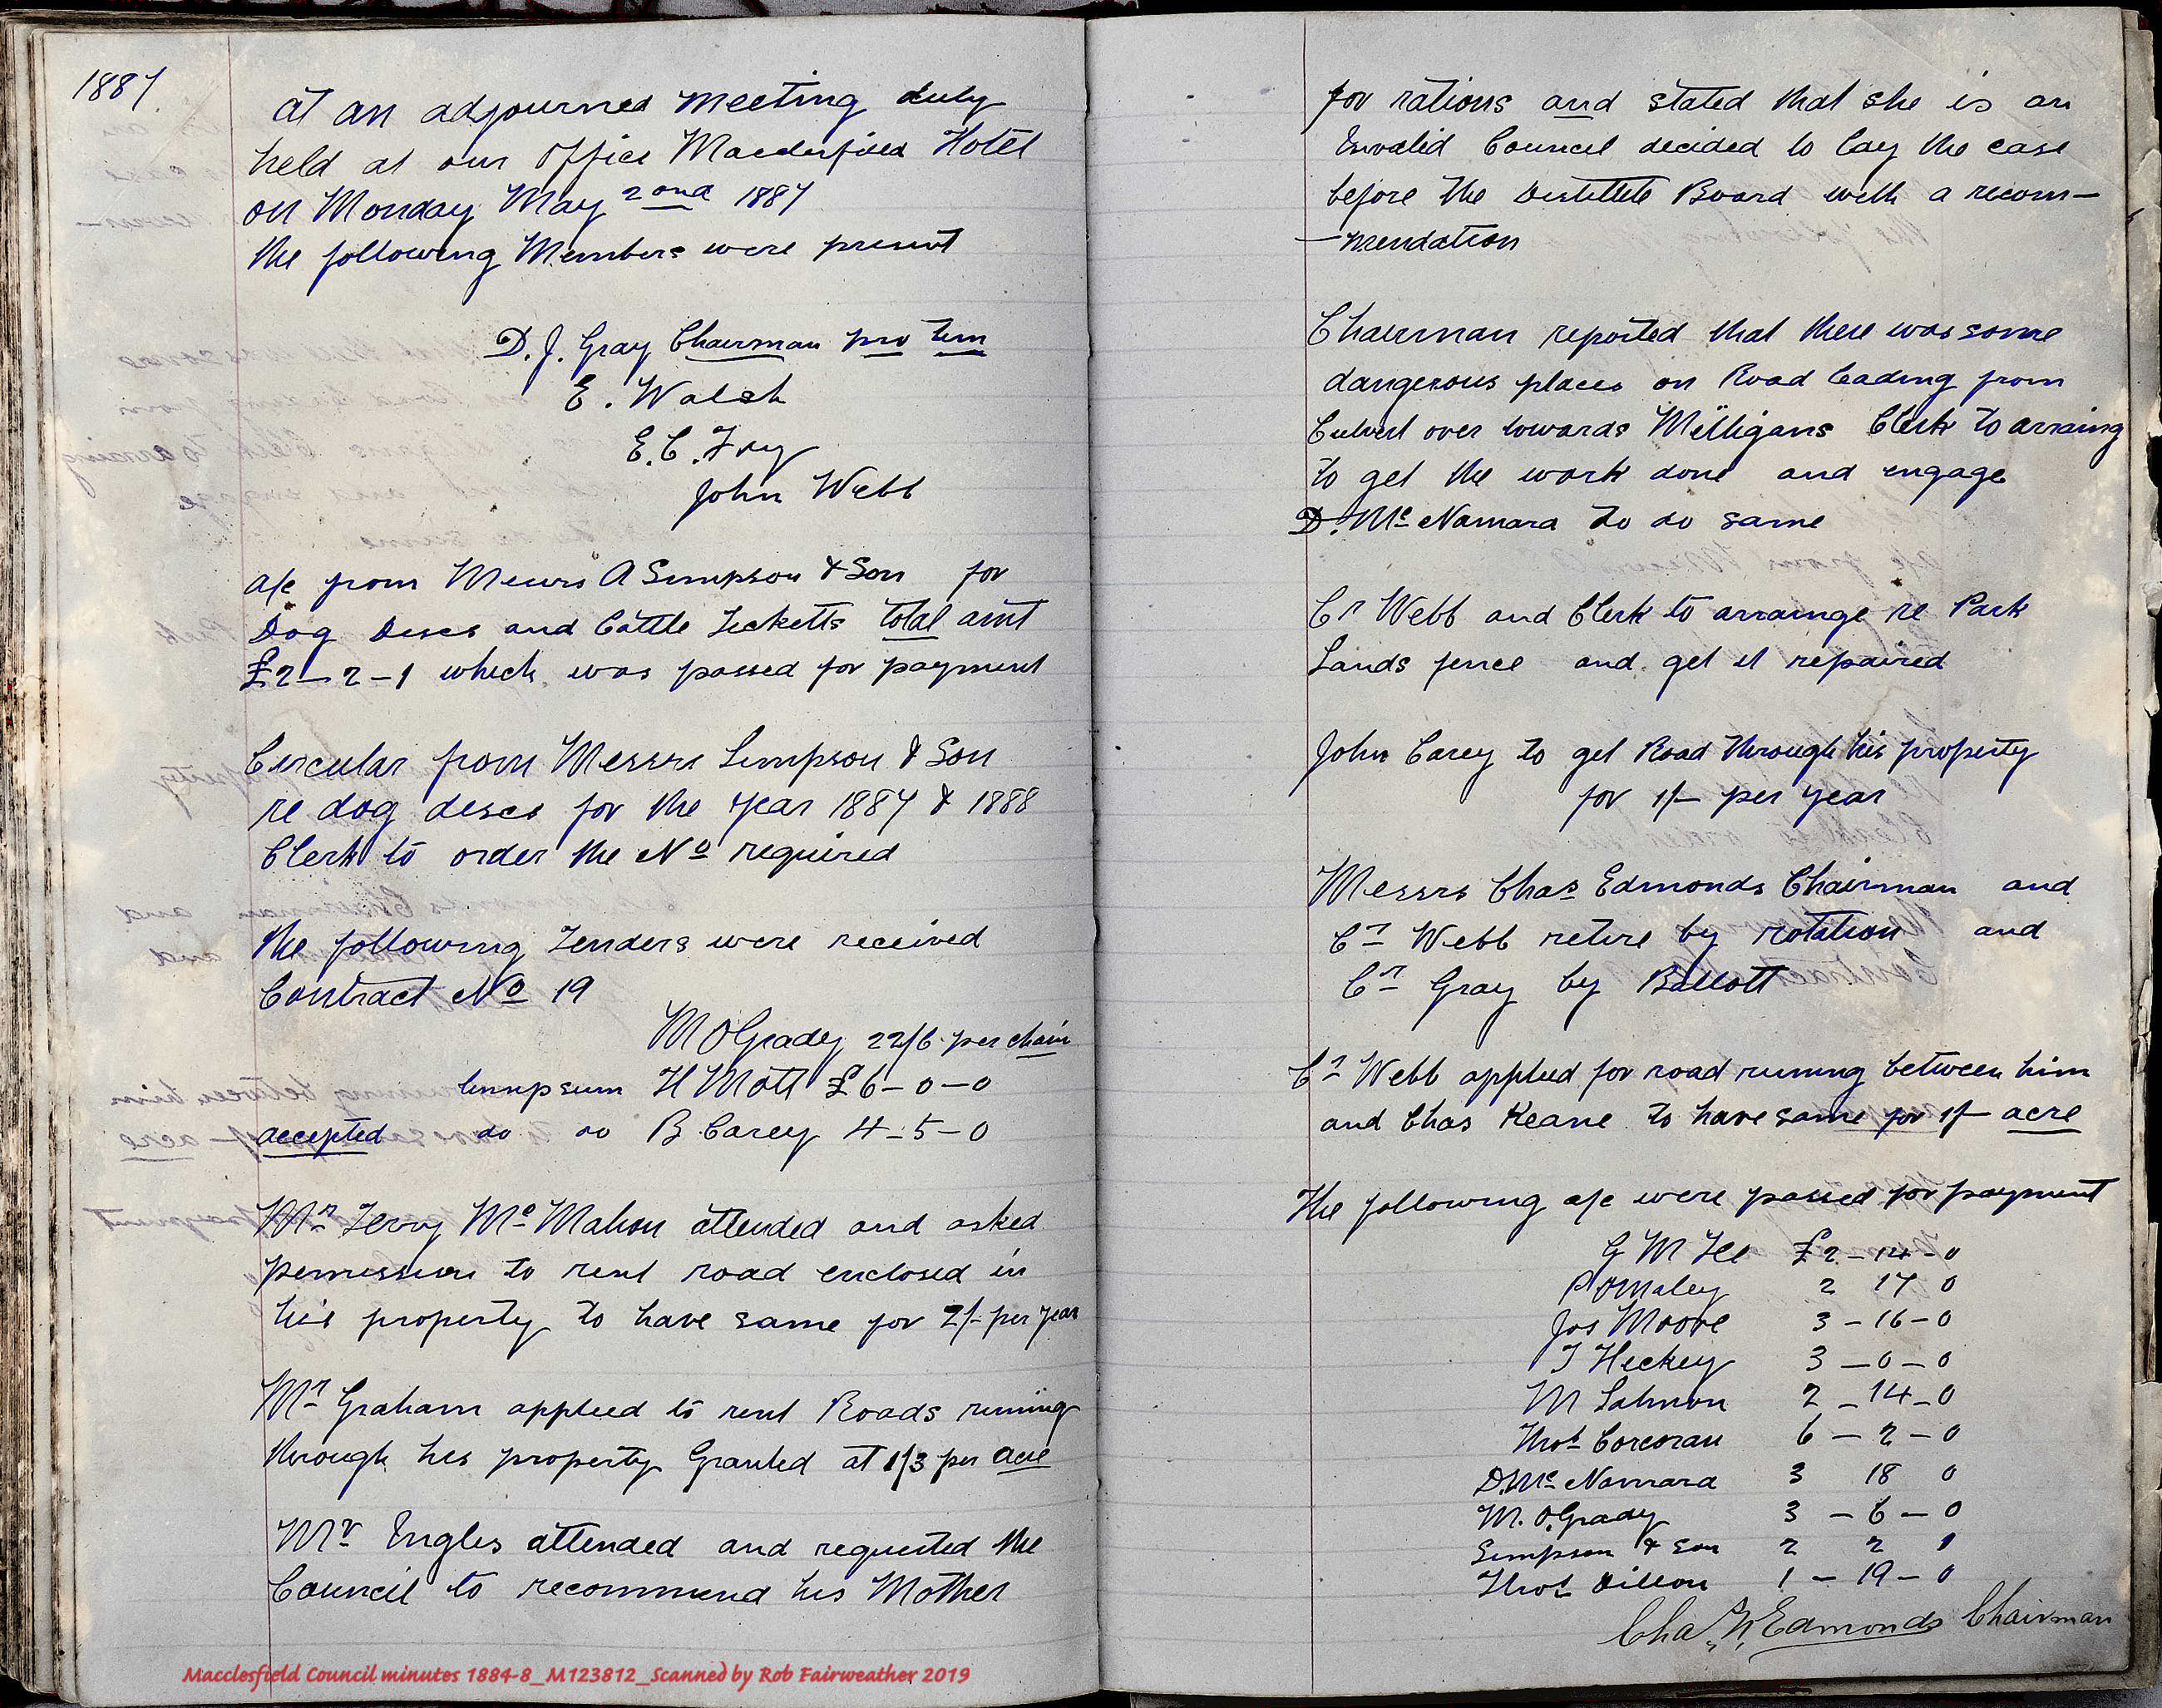 1887
At an adjourned meeting duly
held at our Office Macclesfield Hotel
on Monday May 2ond 1887
the following Members were present
D. J. Gray Chairman pro tem
E. Walsh
E. C. Fry
John Webb
a/c from Messrs A Simpson & Son for
Dog Discs and Cattle Ticketts total amt
£2-2-1 which was passed for payment
Circular from Messrs Simpson & Son
re dog discs for the year 1887 & 1888
Clerk to order the No required
the following Tenders were received
Contract No 19
M OGrady 22/6 per chain
lumpsum H Mott £6-0-0
accepted do do B Carey 4-5-0
Mr Terry Mc Mahon attended and asked
permission to rent road enclosed in
his property to have same for 2/- per year
Mr Graham applied to rent Roads runing
through his property Granted at 1/3 per acre
Mr Ingles attended and requested the
Council to recommend his Mother
for rations and stated that she is an
Invalid Council decided to lay the case
before the Destitute Board with a recom-
-mendation
Chairman reported that there was some
dangerous places on Road leading from
Culvert over towards Milligans Clerk to arraing
to get the work done and engage
D. Mc Namara to do same
Cr Webb and Clerk to arrainge re Park
Lands fence and get it repaired
John Carey to get Road through his property
for 1/- per year
Messrs Chas Edmonds Chairman and
Cr Webb retire by rotation and
Cr Gray by Ballott
Cr Webb applied for road runing between him
and Chas Keane to have same for 1/- acre
The following a/c were passed for payment
G M £2-14-0
P OMaley 2 17 0
Jas Moore 3-16-0
T Hickey 3-0-0
M Salmon 2-14-0
Thos Corcoran 6-2-0
D. Mc Namara 3 18 0
M. O,Grady 3-6-0
Simpson & Son 2 2 1
Thos Dillon 1-19-0
Chas N Edmonds Chairman
Macclesfield Council minutes 1884-8_M123812_Scanned by Rob Fairweather 2019